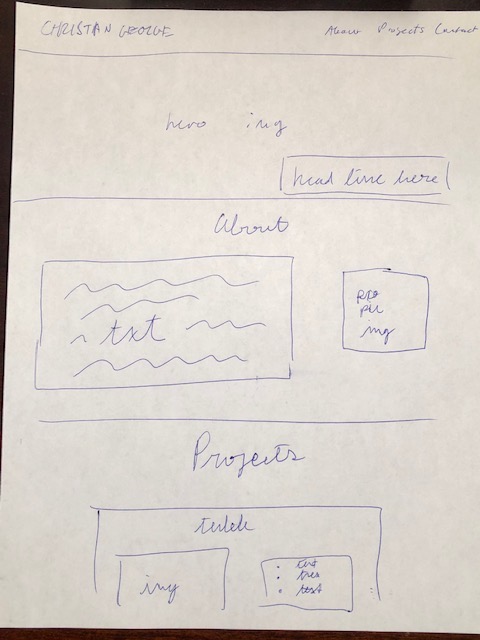 CHRISTAN GEORGE About Projects Contact
hero img
head line here
About
txt
pro
pic
img
Projects
img
text
text